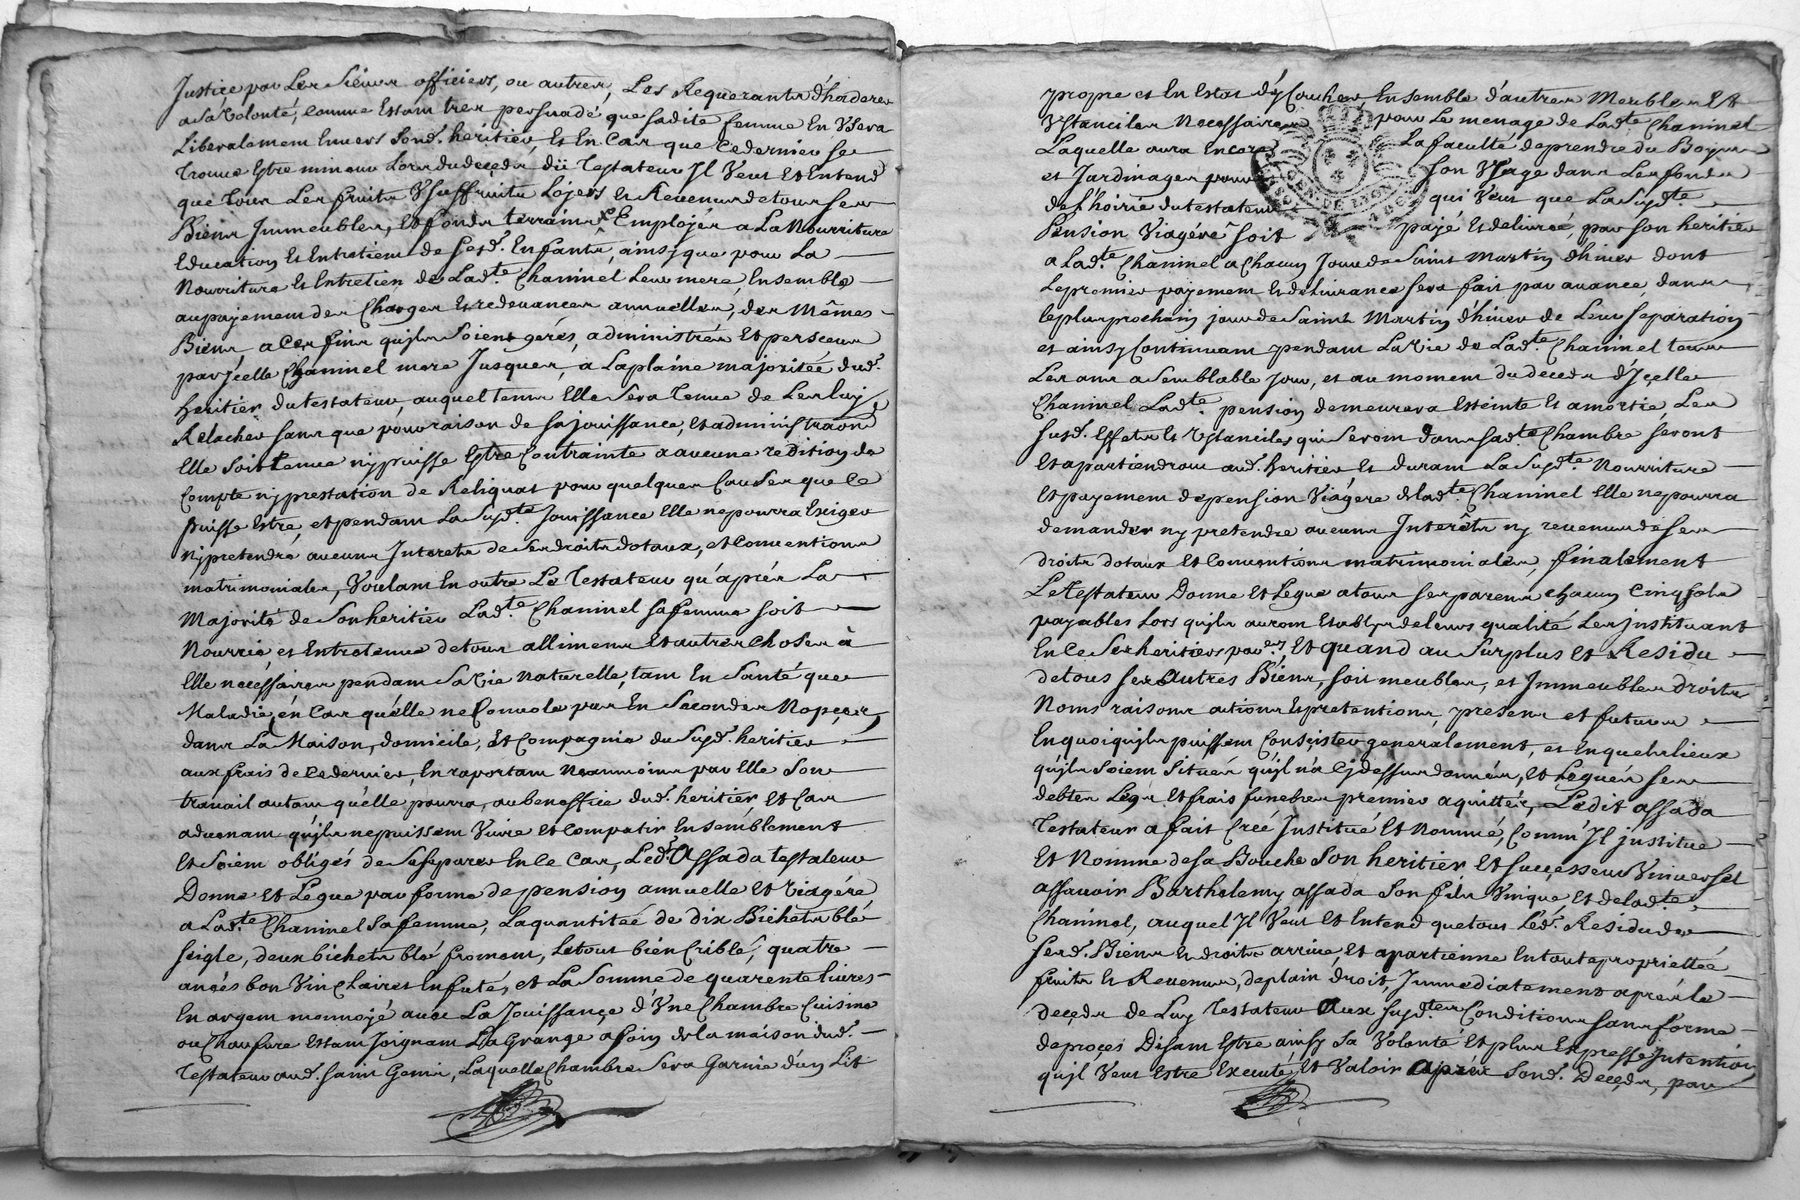 Justice par Les Sieurs officiers, ou autres, Les Requerants d'hoderer
a Sa Volonté, comme Estant tres persuadé que sadite femme En Usera
Liberalement Envers Sond. heritier, Et En Cas que Ce dernier Se
Trouve Estre mineur Lors du deçeds dü Testateur Jl Veut Et Entend
que Tous Les fruits Usuffruits Loyers Et Revenus de tous ses
Biens Immeubles, Et fonds terrains Employés a La Nourriture
Education Et Entretient de Sesd. Enfants, ainsy que pour La
Nourriture Et Entretien de Ladte. Chaninel Leur mere, Ensemble
au payement des Charges Et redevances annuelles, des Mêmes
Biens a Ces fins qu'jls Soient gerés, administrés Et perceus
par Jcelle Chaninel mere Jusques, a La plaine majoritée dud.
heritier du testateur, auquel tems Elle Sera Tenue de Les luy
Relacher sans que pour raison de Sa jouissance, Et administraon
Elle Soit tenue ny puisse Estre Contrainte a aucune redition de
Compte ny prestation de Reliquat pour quelques Causes que Ce
puisse Estre, et pendant La Susd.te Jouissance Elle ne pourra Exiger
ny pretendre aucuns Interets de Ses droits dotaux, et Conventions
matrimoniales, Voulant En outre Le Testateur qu'aprés La
Majorité de Son heritier Ladte. Chaninel Sa femme Soit
Nourrie et Entretenue de tous alliments Et autres Choses à
Elle necessaires pendant Sa Vie naturelle, tant En Santé que
Maladie, En Cas qu'elle ne Convole pas En Secondes Nopçes,
dans La Maison, domicile, Et Compagnie du Susd. heritier
aux frais de Ce dernier, En raportant Neanmoins par Elle Son
travail autant qu'elle pourra, au beneffice dud. heritier Et Cas
advenant qu'jls ne puissent Vivre et Compatir Ensemblement
Et Soient obligés de Se Separer En Ce Cas, Led. Assada testateur
Donne Et Legue par forme de pension annuelle Et Viagére
a Ladte. Chaninel Sa femme, La quantitée de dix Bichets blé
Seigle, deux bichets blé froment, Le tout bien Criblé, quatre
anées bon Vin Clairet Enfuté, et La Somme de quarente livres
En argent monnoyé avec La Jouissançe d'Une Chambre Cuisine
ou Chaufure Estant Joignant La Grange a foin de la maison dud.
Testateur aud. Saint Genis, Laquelle Chambre Sera Garnie d'un Lit
propre et En Estat d'y Coucher, Ensemble d'autres Meubles Et
Ustanciles Necessaires pour Le menage de Ladte. Chaninel
Laquelle aura Encore La faculté de prendre du Boys
et Jardinages pour Son Usage dans Les fonds
de L'hoirie du testateur qui Veut que La Susd.te
Pension Viagére Soit payé Et delivreé, par Son heritier
a Ladte. Chaninel a Chacun Jour de Saint Martin d'hiver dont
Le premier payement Et delivrance Sera fait par avance dans
le plus prochain jour de Saint Martin d'hiver de Leur Separation
et ainsy Continuant pendant La Vie de Ladte. Chaninel tous
Les ans a Semblable Jour, et au moment du deceds d'Jçelle
Chaninel Ladte. pension demeurera Esteinte Et amortie, Les
Susd. Effets Et Ustanciles qui Seront dans Sadte Chambre Seront
Et apartiendront aud. heritier Et durant La Susd.te Nourriture
Et payement de pension Viagére de Ladte. Chaninel Elle ne pourra
demander ny pretendre aucuns Interêts ny revenus de Ses
droits dotaux et Conventions matrimoniales, finalement
Le Testateur Donne Et Legue a tous Ses parens chacun Cinq Sols
payables Lors qu'jls auront Etablys de leurs qualité Les Jnstituant
En Ce Ses heritiers par.ers Et quand au Surplus et Residu
de tous Ses Autres Biens, Soit meubles, et Jmmeubles droits
Noms raisons actions Et pretentions, presens et futurs
En quoi qu'jls puissent Consçister generalement, et En quels lieux
qu'jls Soient Situés qu'jl n'a Cy dessus donnés, et Legués Ses
debtes Legs Et frais funebres premier aquittés, Ledit assada
Testateur a fait Creé Jnstitué Et Nommé, Comm' Jl justitue
Et Nomme de Sa Bouche Son heritier Et Suççesseur Universel
assavoir Barthelemy assada Son fils Unique Et de Ladte.
Chaninel, auquel Jl Veut Et Entend que tous Led. Residu de
Sesd. Biens Et droits arrive, Et apartienne En toute proprietée
fruits Et Revenus, de plain droit, Jmmediatement aprés Le
Deçeds de Luy Testateur Aux Susd.tes Conditions Sans forme
de procés Disant Estre ainsy Sa Volonté Et plus Expresse Jntention
qu'jl Veut Estre Executé Et Valoir Aprés Sond. Deçeds, par